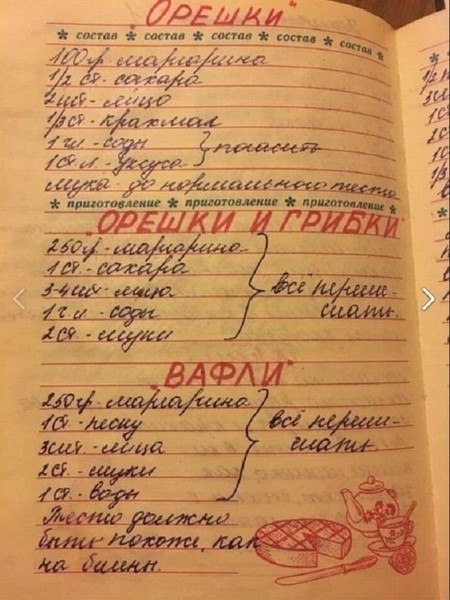 "ОРЕШКИ"
* состав * состав * состав * состав * состав *
100гр. маргарина
1/2 ст. сахара
2шт - яйцо
1/3 ст. крахмал
1 ч.л. - соды } погасить
1 ст. л. - уксуса
мука - до нормального теста
* приготовление * приготовление * приготовление *
"ОРЕШКИ И ГРИБКИ"
250гр. - маргарина
1 ст. - сахара
3-4 шт. - яйцо } всё переме-
1 ч.л. - соды шать.
2 ст. - муки
"ВАФЛИ"
250гр. маргарина
1 ст. - песку } всё переме-
3шт. - яйца шать.
2 ст. - муки
1 ст. - воды
Тесто должно
быть похоже, как
на блины.